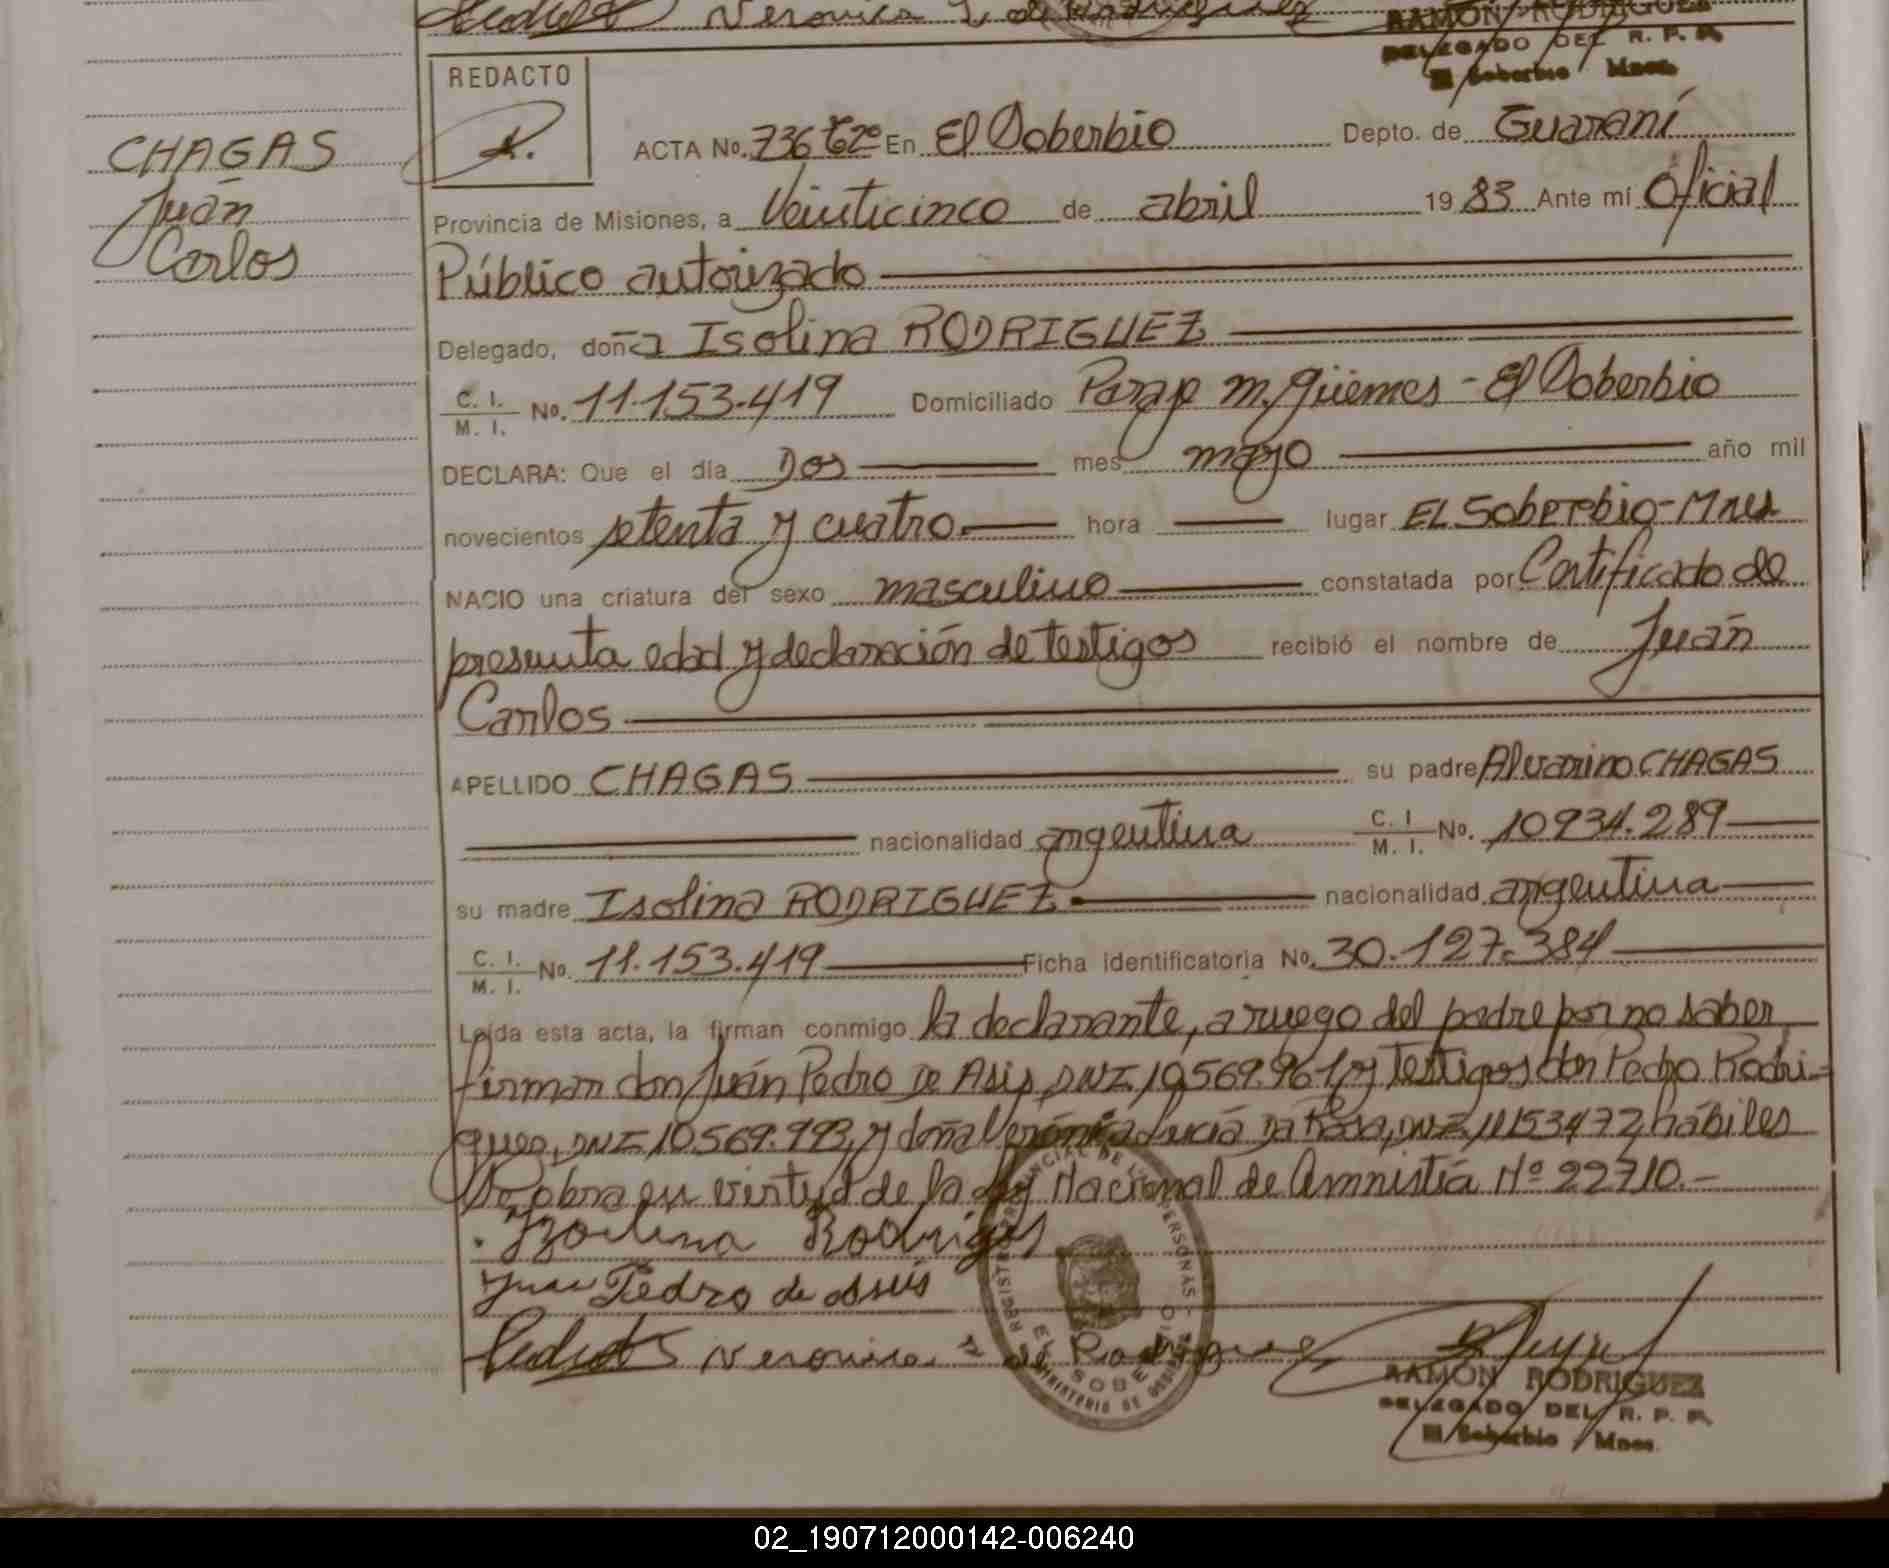 Veronica L. de Rodriguez
RAMON RODRIGUEZ
DELEGADO DEL R. P. P.
El Soberbio Mnes.
REDACTO
CHAGAS
Juán
Carlos
ACTA No. 736 Tº2º En El Soberbio Depto. de Guaraní
Provincia de Misiones, a Veinticinco de abril 1983 Ante mí Oficial
Público autorizado
Delegado, doña Isolina RODRIGUEZ
C. I. / M. I. No. 11.153.419 Domiciliado Paraje M. Güemes - El Soberbio
DECLARA: Que el día Dos mes mayo año mil
novecientos setenta y cuatro.— hora — lugar EL Soberbio-Mnes
NACIO una criatura del sexo masculino constatada por Certificado de
presunta edad y declaración de testigos recibió el nombre de Juán
Carlos
APELLIDO CHAGAS su padre Alvarino CHAGAS
nacionalidad argentina C. I. / M. I. No. 10934.289
su madre Isolina RODRIGUEZ nacionalidad argentina
C. I. / M. I. No. 11.153.419 Ficha identificatoria No. 30.127.384
Leída esta acta, la firman conmigo la declarante, a ruego del padre por no saber
firmar don Juán Pedro De Asis, DNI. 10.569.961, y testigos don Pedro Rodri-
gues, DNI. 10.569.993, y doña Verónica Lucía Da Rosa, DNI. 11153472, hábiles
Se obra en virtud de la Ley Nacional de Amnistía Nº 22710.-
Izolina Rodrigues
Juan Pedro de assis
Veronica L de Rodriguez
REGISTRO PROVINCIAL DE LAS PERSONAS
EL SOBERBIO
MINISTERIO DE GOBIERNO
RAMON RODRIGUEZ
DELEGADO DEL R. P. P.
El Soberbio Mnes.
02_190712000142-006240